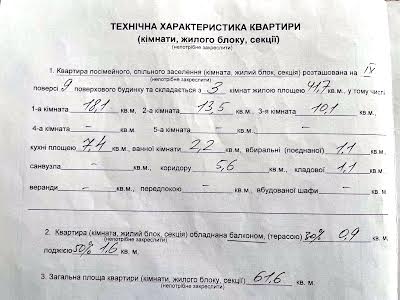 ТЕХНІЧНА ХАРАКТЕРИСТИКА КВАРТИРИ
(кімнати, жилого блоку, секції)
(непотрібне закреслити)
1. Квартира посімейного, спільного заселення (кімната, жилий блок, секція) розташована на IV
(непотрібне закреслити)
поверсі 9 поверхового будинку та складається з 3 кімнат жилою площею 41,7 кв.м., у тому числі
1-а кімната 18,1 кв.м, 2-а кімната 13,5 кв.м, 3-я кімната 10,1 кв.м,
4-а кімната – кв.м, 5-а кімната – кв.м,
кухні площею 7,4 кв.м., ванної кімнати 2,2 кв.м, вбиральні (поєднаної) 1,1 кв.м,
санвузла – кв.м, коридору 5,6 кв.м, кладової 1,1 кв.м
веранди – кв.м, передпокою – кв.м, вбудованої шафи – кв.м.
2. Квартира (кімната, жилий блок, секція) обладнана балконом, (терасою) 30% 0,9 кв.м,
(непотрібне закреслити)
лоджією 50% 1,6 кв.м.
3. Загальна площа квартири (кімнати, жилого блоку, секції) 61,6 кв.м.
(непотрібне закреслити)